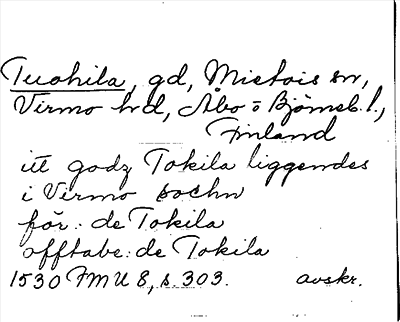 Tuohila, gd, Mietois sn,
Virmo hrd, Åbo o Björneb. l.,
Finland
itt godz Tokila liggendes
i Virmo sochn
för: de Tokila
efftabe: de Tokila
1530 FMU 8, s. 303. avskr.